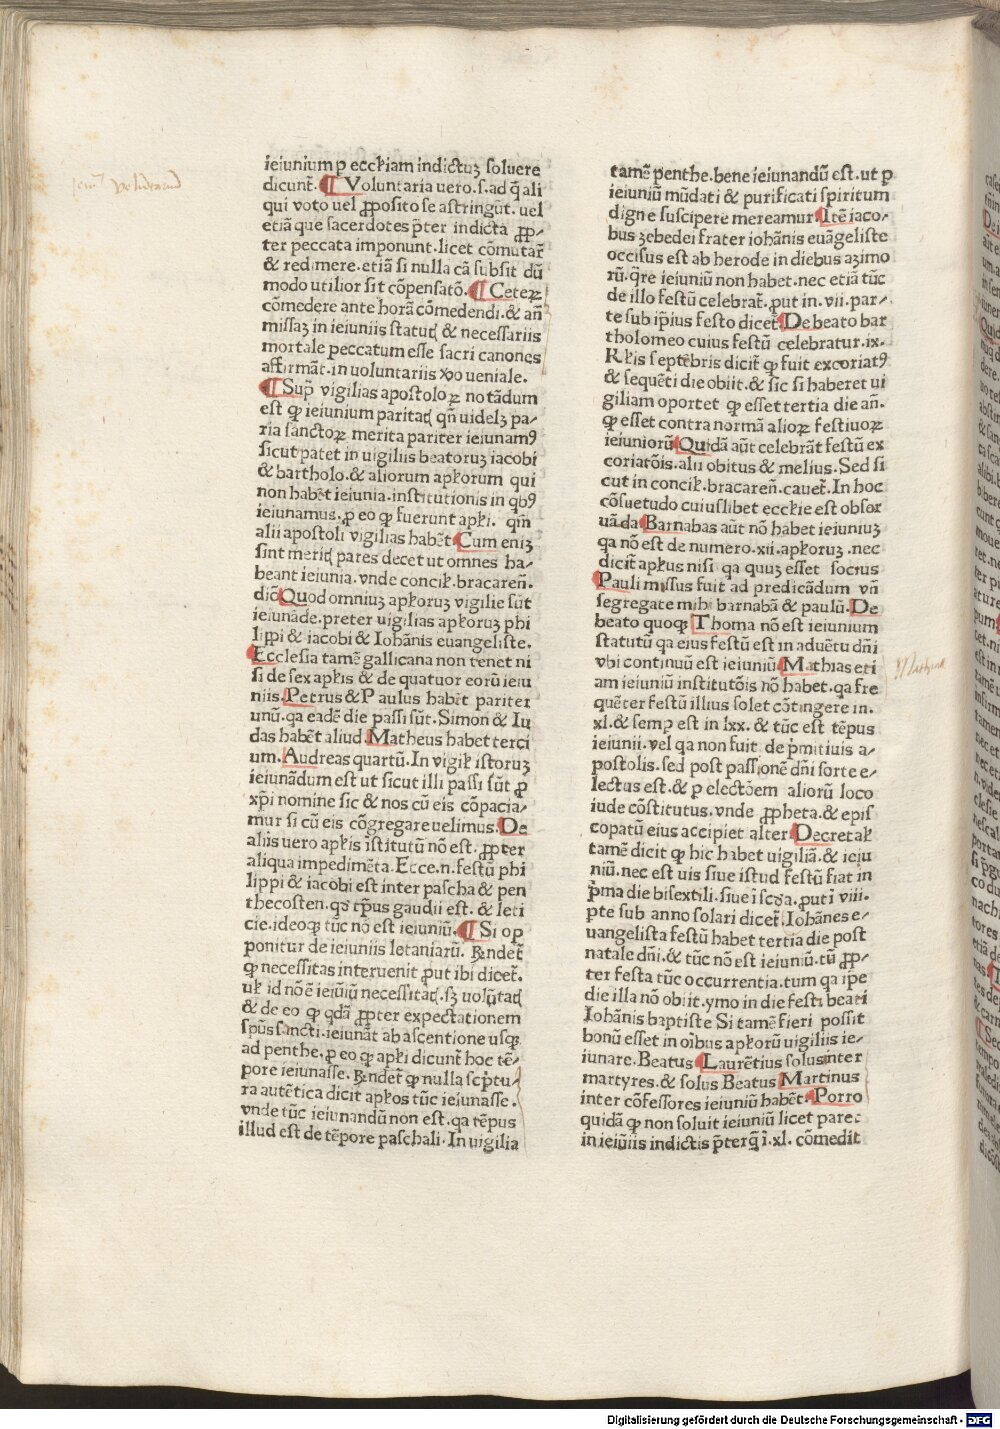 ieiuniū p eccƚiam indictuʒ soluere
dicunt̄. ¶ Voluntaria uero .s. ad q̄ ali
qui voto uel ꝓposito se astringūt. uel
etiā que sacerdotes p̄ter indicta ꝓp⸗
ter peccata imponunt. licet cōmutar̄
& redimere. etiā si nulla cā subsit dū
modo utilior sit cōpensatō. ¶ Ceteꝝ
cōmedere ante horā cōmedendi. & an̄
missaʒ in ieiuniis statuꝭ & necessariis
mortale peccatum esse sacri canones
affirmāt. in uoluntariis ꝟo ueniale.
¶ Sup̄ vigilias apostoloꝝ notādum
est ꝙ ieiunium paritaꝭ qn̄ uidelʒ pa⸗
ria sanctoꝝ merita pariter ieiunamꝰ
sicut patet in uigiliis beatoruʒ iacobi
& bartholo. & aliorum apƚorum qui
non habēt ieiunia. institutionis in qbꝰ
ieiunamus. ꝓ eo ꝙ fuerunt apƚi. qm̄
alii apostoli vigilias habēt Cum eniʒ
sint meriꝭ pares decet ut omnes ha⸗
beant ieiunia. vnde conciƚ. bracareñ.
dic̄ Quod omniuʒ apƚoruʒ vigilie sūt
ieiunāde. preter uigilias apƚoruʒ phi
lippi & iacobi & Iohānis euangeliste.
Ecclesia tamē gallicana non tenet ni
si de sex apƚis & de quatuor eorū ieiu
niis. Petrus & Paulus habēt pariter
unū. qa eadē die passi sūt. Simon & Iu
das habēt aliud. Matheus habet terci
um. Andreas quartū. In vigiƚ istoruʒ
ieiunādum est ut sicut illi passi sūt ꝓ
xp̄i nomine sic & nos cū eis cōpacia⸗
mur si cū eis cōgregare uelimus. De
aliis uero apƚis īstitutū nō est. ꝓpter
aliqua impedimēta. Ecce .n. festū phi
lippi & iacobi est inter pascha & pen
thecosten. qd̄ tp̄us gaudii est. & leti
cie. ideoqꝫ tūc nō est ieiuniū. ¶ Si op
ponitur de ieiuniis letaniarū. R̄ndet̄
ꝙ necessitas interuenit ꝓut ibi dicet̄.
uƚ id nō ē ieiūiū necessitaꝭ. sʒ uolūtaꝭ
& de eo ꝙ qdā ꝓpter expectationem
sp̄us sancti. ieiunāt ab ascentione usqꝫ
ad penthe. ꝓ eo ꝙ apƚi dicunt̄ hoc tē⸗
pore ieiunasse. R̄ndet̄ ꝙ nulla scp̄tu⸗
ra autētica dicit apƚos tūc ieiunasse.
vnde tūc ieiunandū non est. qa tēpus
illud est de tēpore paschali. In uigilia
tamē penthe. bene ieiunandū est. ut p
ieiuniū mūdati & purificati spiritum
digne suscipere mereamur. Itē iaco⸗
bus ʒebedei frater iohānis euāgeliste
occisus est ab herode in diebus aʒimo
rū. q̄re ieiuniū non habet. nec etiā tūc
de illo festū celebrat̄. ꝓut in .vii. par⸗
te sub ip̄ius festo dicet̄ De beato bar
tholomeo cuius festū celebratur .ix.
Kƚis septēbris dicit̄ ꝙ fuit excoriatꝰ
& sequēti die obiit. & sic si haberet ui
giliam oportet ꝙ esset tertia die an̄.
ꝙ esset contra normā alioꝝ festiuoꝝ
ieiuniorū Quidā aūt celebrāt festū ex
coriatōis. alii obitus & melius. Sed si
cut in conciƚ. bracareñ. cauet̄. In hoc
cōsuetudo cuiuslibet eccƚie est obser
uāda Barnabas aūt nō habet ieiuniuʒ
qa nō est de numero .xii. apƚoruʒ. nec
dicit̄ apƚus nisi qa quuʒ esset socius
Pauli missus fuit ad predicādum vn̄
segregate mihi barnabā & paulū. De
beato quoqꝫ Thoma nō est ieiunium
statutū qa eius festū est in aduētu dn̄i
vbi continuū est ieiuniū Mathias eti
am ieiuniū institutōis nō habet. qa fre
quēter festū illius solet cōtingere in.
xl. & semp est in lxx. & tūc est tēpus
ieiunii. vel qa non fuit de p̄mitiuis a⸗
postolis. sed post passionē dn̄i sorte e⸗
lectus est. & p electōem aliorū loco
iude cōstitutus. vnde ꝓpheta. & epis
copatū eius accipiet alter Decretaƚ
tamē dicit ꝙ hic habet uigiliā. & ieiu
niū. nec est uis siue istud festū fiat in
p̄ma die bisextili. siue ī scd̄a. ꝓut ī viii.
pte sub anno solari dicet̄. Iohānes e⸗
uangelista festū habet tertia die post
natale dn̄i. & tūc nō est ieiuniū. tū ꝓp⸗
ter festa tūc occurrentia. tum qa ip̄e
die illa nō obiit. ymo in die festi beati
Iohānis baptiste Si tamē fieri possit
bonū esset in oībus apƚorū uigiliis ie⸗
iunare. Beatus Laurētius solus inter
martyres. & solus Beatus Martinus
inter cōfessores ieiuniū habēt. Porro
quidā ꝙ non soluit ieiuniū licet parce
in ieiūiis indictis p̄terq̄ ī .xl. cōmedit
Digitalisierung gefördert durch die Deutsche Forschungsgemeinschaft - DFG